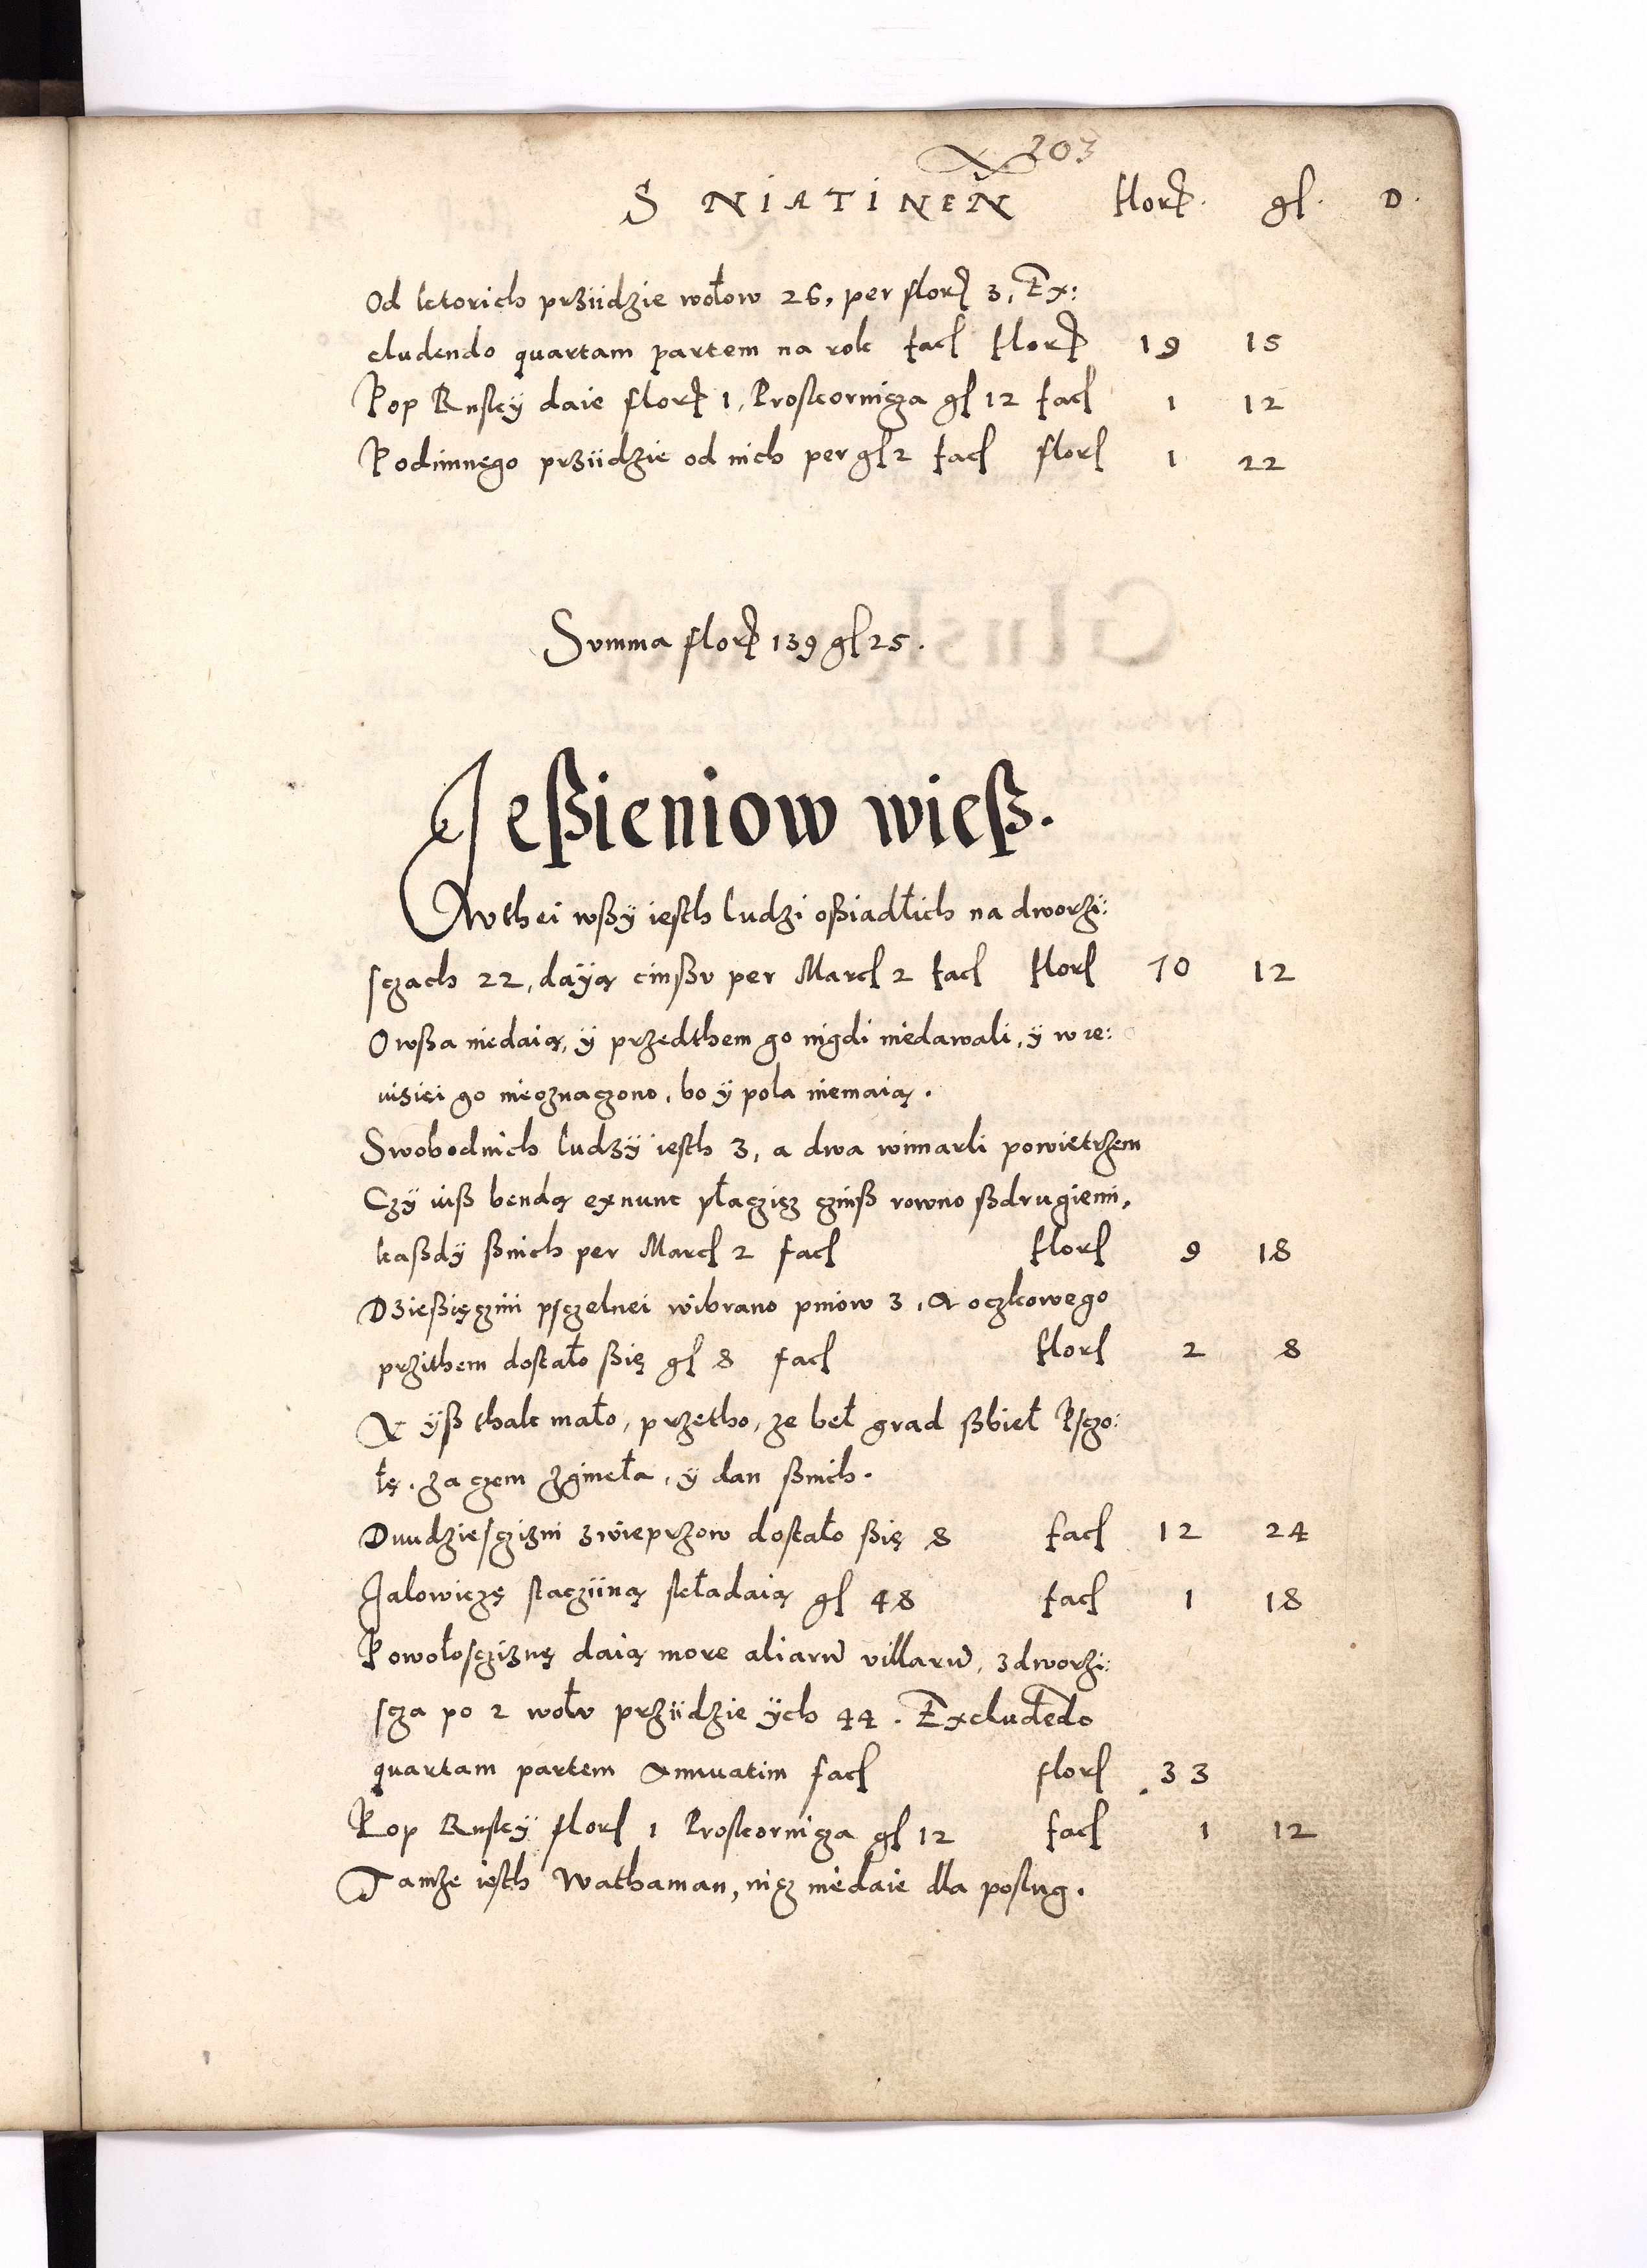 203
SNIATINEN̄ flor. gſ. D.
Od ktorich prziidzie wołow 26, per flor. 3, Ex:
cludendo quartam partem na rok fac. flor. 19 15
Pop Ruskÿ daie flor. 1, Proskornicza gſ 12 fac. 1 12
Podimnęgo prziidzie od nich per gſ 2 fac. flor. 1 22
Summa flor. 139 gſ 25.
Jeßieniow wieß.
W thei wßÿ iesth ludzi oßiadłich na dworzi:
sczach 22, daÿą cinßv per Marc. 2 fac. flor. 70 12
Owßa niedaią, ÿ przedthem go nigdi niedawali, ÿ w re:
uisiei go nieoznaczono, bo ÿ pola niemaią.
Swobodnich ludzÿ iesth 3, a dwa wimarli powietrzem
Czÿ iuß bendą exnunc płaczięz czinß rowno ßdrugiemi,
kaßdÿ ßnich per Marc. 2 fac. flor. 9 18
Dzießięczini psczelnei wibrano pniow 3, A oczkowego
przithem dostało ßię gſ 8 fac. flor. 2 8
A ÿß thak mało, przetho, ze beł grad ßbieł Psczo:
łę. za czem zgineła, ÿ dan ßnich.
Dwudziesczizni zwieprzow dostało ßię 8 fac. 12 24
Jalowiczę staczÿiną składaią gſ 48 fac. 1 18
Powołosciznę daią more aliarū villarū, z dworzi:
scza po 2 wołv prziidzie ÿch 44. Excludēdo
quartam partem Annuatim fac. flor. 33
Pop Ruskÿ flor. 1 Proskornicza gſ 12 fac. 1 12
Tamże iesth Wathaman, nicz niedaie dla poslug.